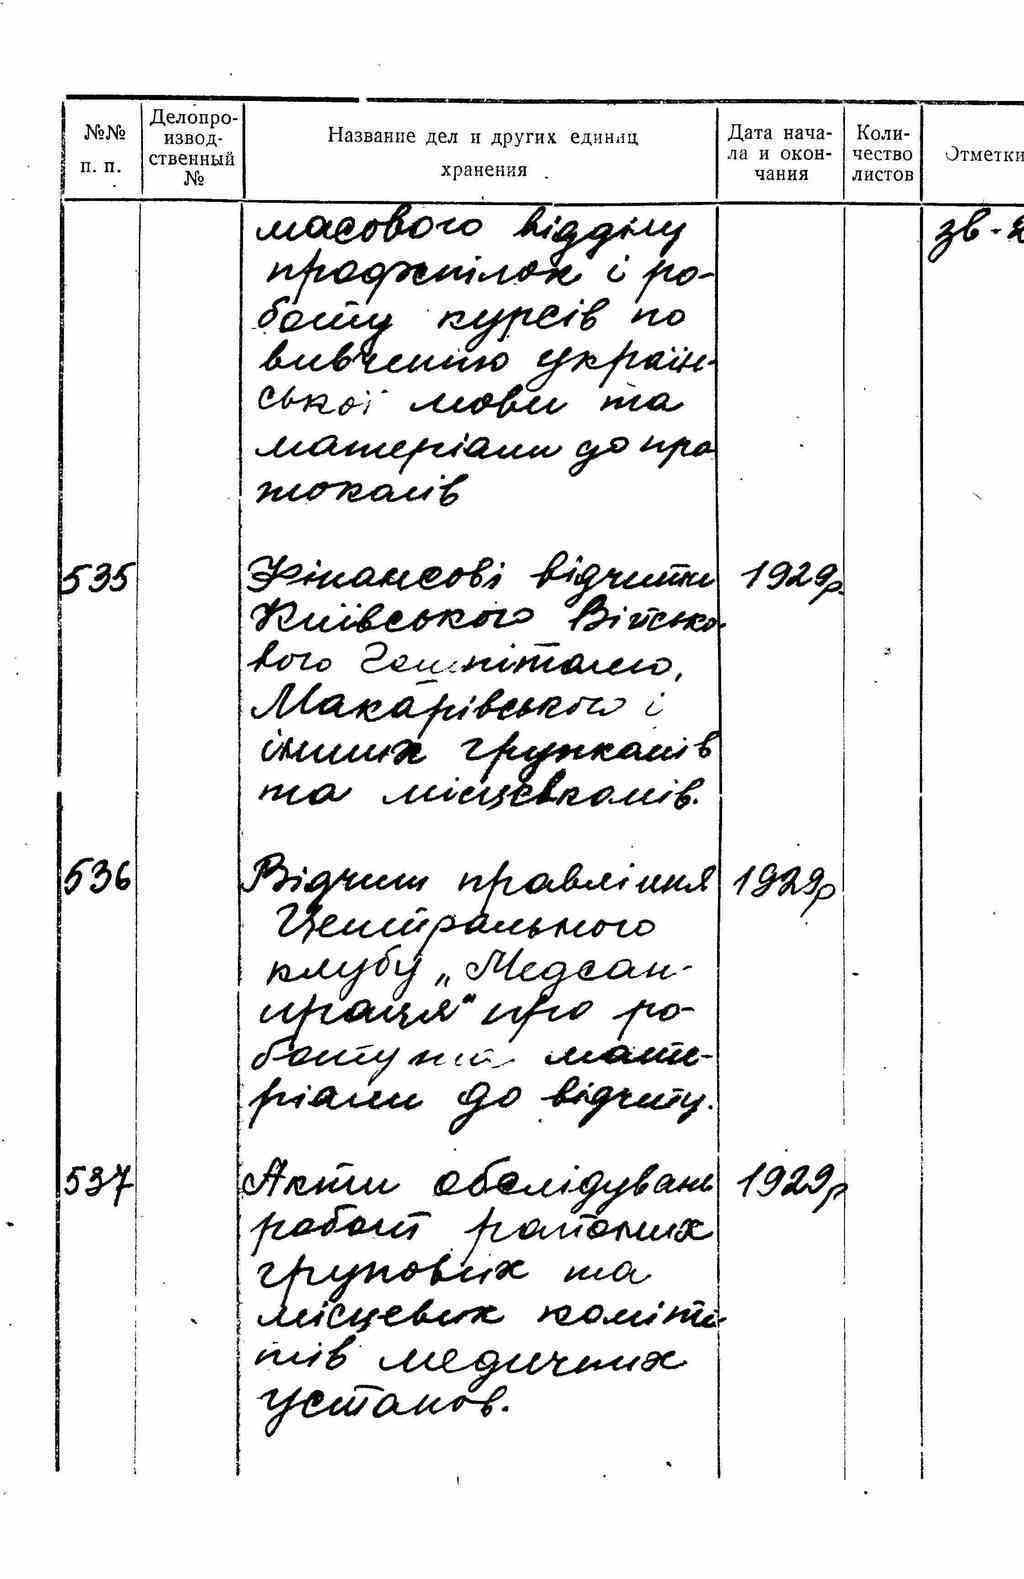 №№ п. п.
Делопро-
извод-
ственный
№
Название дел и других единиц
хранения
Дата нача-
ла и окон-
чания
Коли-
чество
листов
Отметки
масового відділу
профспілок і ро-
боту курсів по
вивченню україн-
ської мови та
матеріали до про
токолів
зв-
535
Фінансові відчити
Київського Військо-
вого Гошпіталю,
Макарівського і
інших групкомів
та місцевкомів.
1929р.
536
Відчит правління
Центрального
клубу „Медсан-
праця" про ро-
боту та мате-
ріали до відчиту.
1929р
537
Акти обслідувань
робот районних
групових та
місцевих коміте-
тів медичних
установ.
1929р